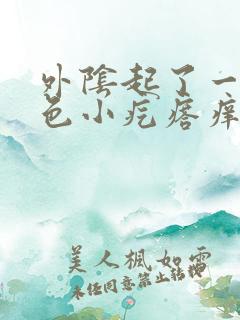 外陰起了一
色小疙瘩痒
美人楓如雪
未经同意禁止转授